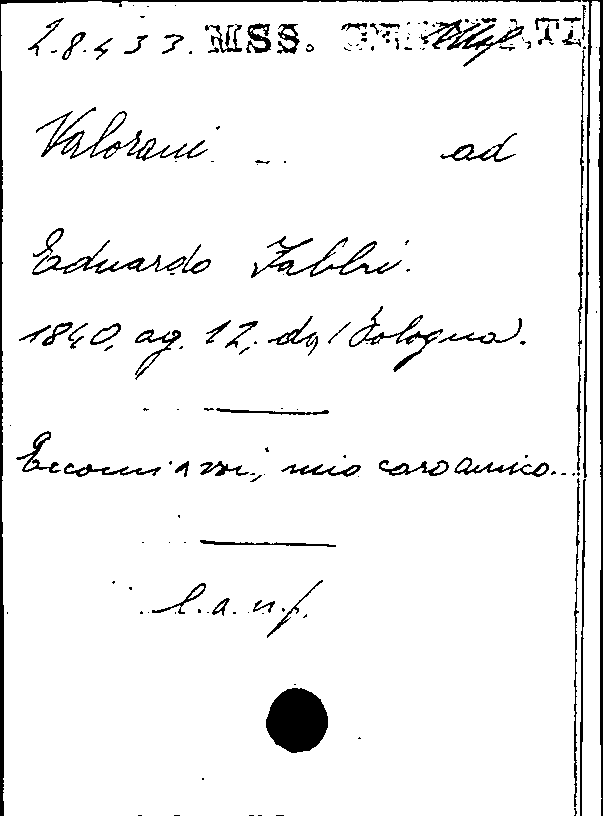 2.8.433. MSS.
Valorani ad
Eduardo Fabbri.
1840, ag. 12, da Bologna.
Eccomi a voi, mio caro amico...
l.a.n.f.